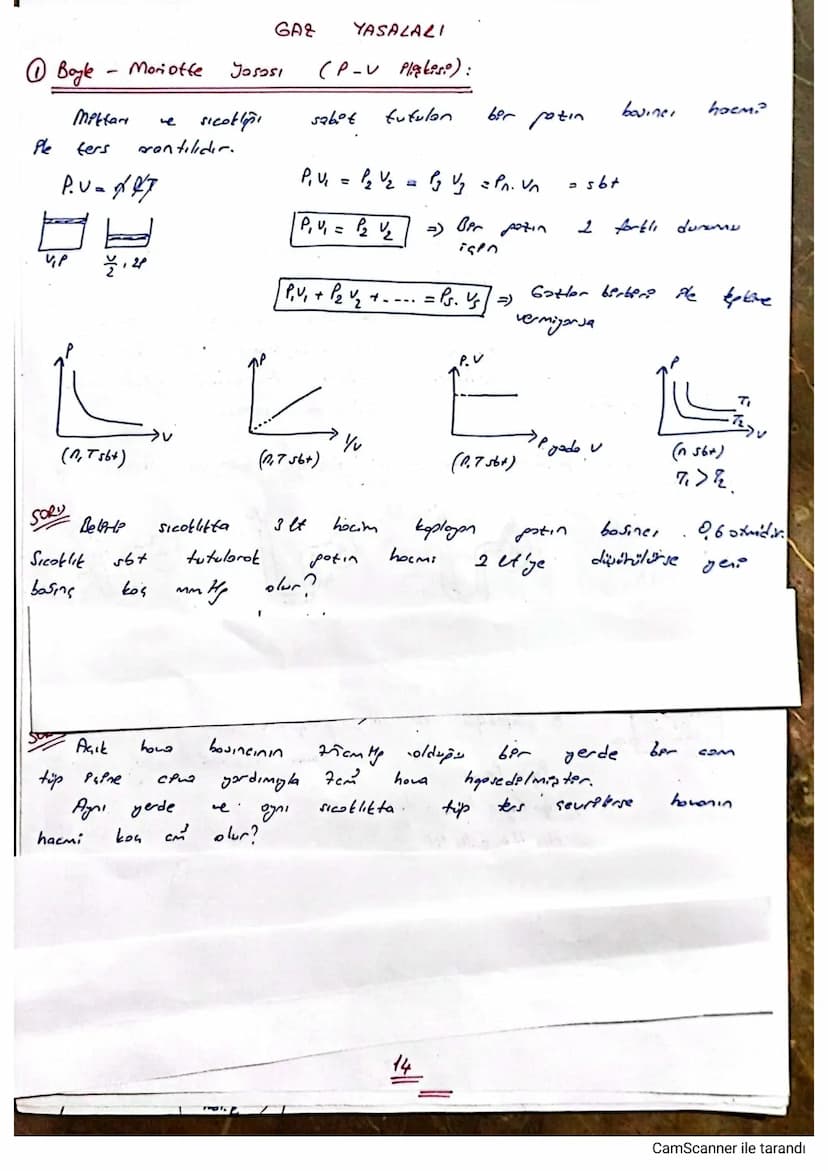 GAZ YASALARI
① Boyle - Mariotte Yasası (P-V ilişkisi):
Miktarı ve sıcaklığı sabit tutulan bir gazın basıncı hacmi
ile ters orantılıdır.
P.V = nRT
P₁V₁ = P₂V₂ = P₃V₃ = Pn.Vn = sbt
P₁V₁ = P₂V₂ => Bir gazın 2 farklı durumu
için
V,P
V/2, 2P
P₁V₁ + P₂V₂ + .... = Ps.Vs => Gazlar birbiri ile tepkime
vermiyorsa
P V (n,T sbt)
P 1/V (n,T sbt)
P.V P yada V (n,T sbt)
P T₁ T₂ V (n sbt)
T₁ > T₂
SORU Belirli sıcaklıkta 3 lt hacim kaplayan gazın basıncı 0,6 atmidir.
Sıcaklık sbt tutularak gazın hacmi 2 lt'ye düşürülürse yeni
basınç kaç mmHg olur?
Açık hava basıncının 75cmHg olduğu bir yerde bir cam
tüp içine civa yardımıyla 7cm³ hava hapsedilmiştir.
Aynı yerde ve aynı sıcaklıkta tüp ters çevrilirse havanın
hacmi kaç cm³ olur?
14
CamScanner ile tarandı